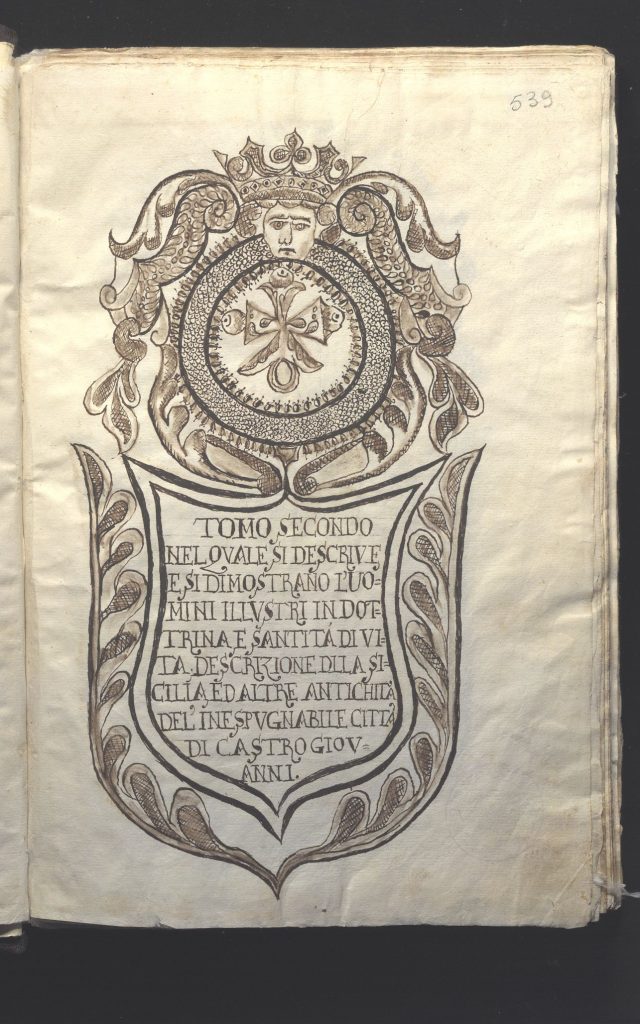 539
TOMO SECONDO
NEL QVALE SI DESCRIVE
E SI DIMOSTRANO L'UO=
MINI ILLVSTRI IN DOT=
TRINA E SANTITÁ DI VI=
TA. DESCRIZIONE DI LA SI=
CILIA, ED ALTRE ANTICHITÁ
DEL' INESPVGNABILE CITTÁ
DI CASTRO GIOV=
ANNI.